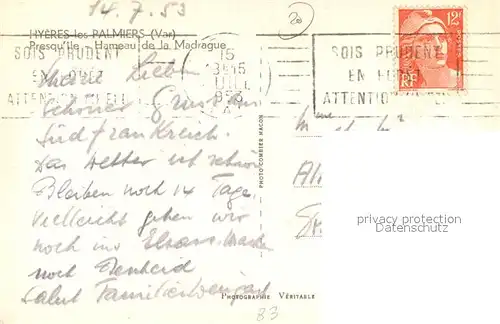 14.7.53
20
HYÈRES-les-PALMIERS (Var)
Presqu'île - Hameau de la Madrague
SOIS PRUDENT
EN FORÊT
ATTENTION AU FEU
15
JUIL
1953
SOIS PRUDENT
EN FORÊT
ATTENTION AU FEU
12F
RF
Schöner Gruss aus
Südfrankreich.
Das Wetter ist schön
Bleiben noch 14 Tage.
Vielleicht gehen wir
noch ins Elsass.
noch
Salut Familie
PHOTO COMBIER MACON
privacy protection
PHOTOGRAPHIE VÉRITABLE
83